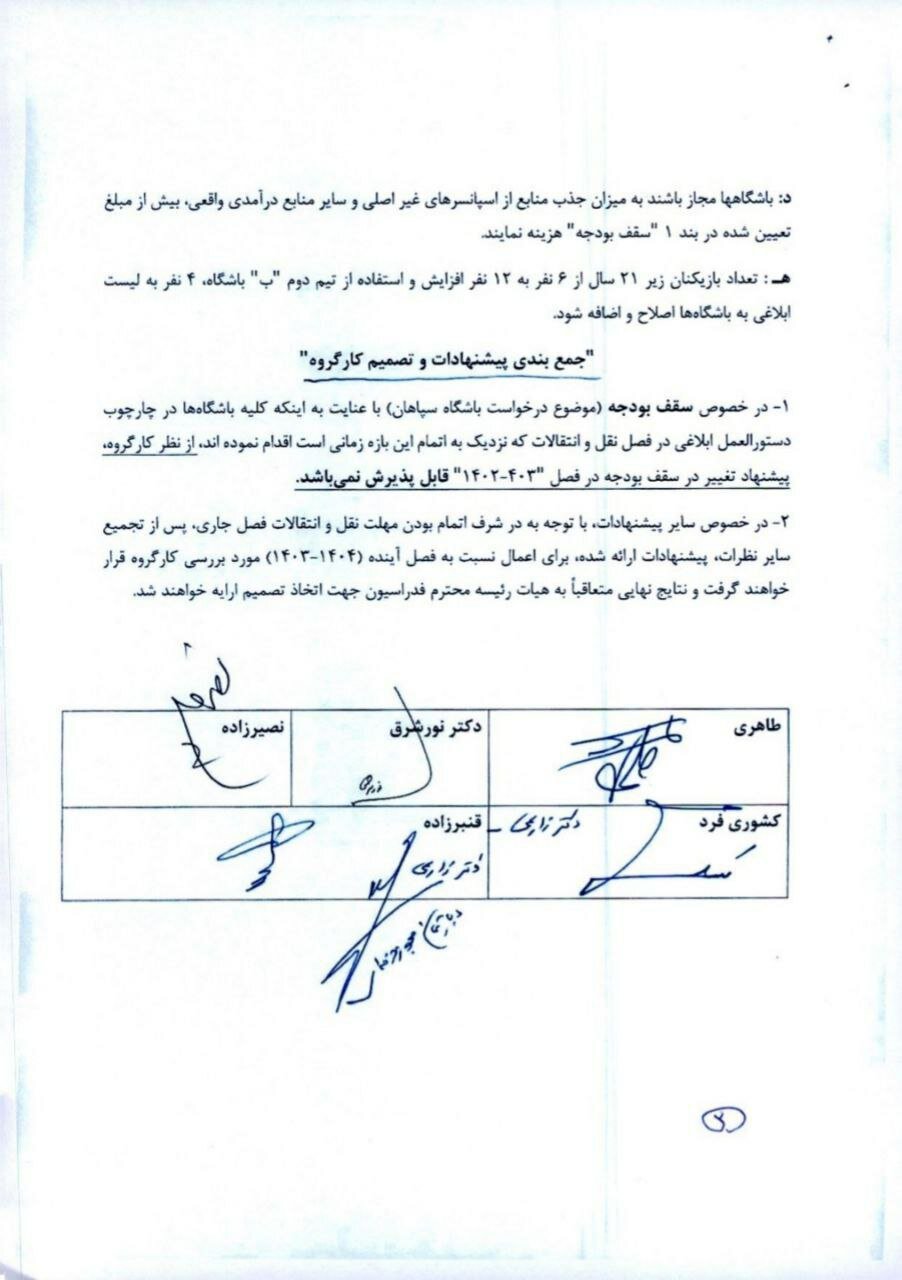 د: باشگاهها مجاز باشند به میزان جذب منابع از اسپانسرهای غیر اصلی و سایر منابع درآمدی واقعی، بیش از مبلغ
تعیین شده در بند ۱ "سقف بودجه" هزینه نمایند.
هـ : تعداد بازیکنان زیر ۲۱ سال از ۶ نفر به ۱۲ نفر افزایش و استفاده از تیم دوم "ب" باشگاه، ۴ نفر به لیست
ابلاغی به باشگاه‌ها اصلاح و اضافه شود.
"جمع بندی پیشنهادات و تصمیم کارگروه"
۱- در خصوص سقف بودجه (موضوع درخواست باشگاه سپاهان) با عنایت به اینکه کلیه باشگاه‌ها در چارچوب
دستورالعمل ابلاغی در فصل نقل و انتقالات که نزدیک به اتمام این بازه زمانی است اقدام نموده اند، از نظر کارگروه،
پیشنهاد تغییر در سقف بودجه در فصل "۴۰۳-۱۴۰۲" قابل پذیرش نمی‌باشد.
۲- در خصوص سایر پیشنهادات، با توجه به در شرف اتمام بودن مهلت نقل و انتقالات فصل جاری، پس از تجمیع
سایر نظرات، پیشنهادات ارائه شده، برای اعمال نسبت به فصل آینده (۱۴۰۴-۱۴۰۳) مورد بررسی کارگروه قرار
خواهند گرفت و نتایج نهایی متعاقباً به هیات رئیسه محترم فدراسیون جهت اتخاذ تصمیم ارایه خواهند شد.
طاهری
دکتر نورشرق
نصیرزاده
کشوری فرد
دکتر زارعی
قنبرزاده
دکتر زارعی
۲